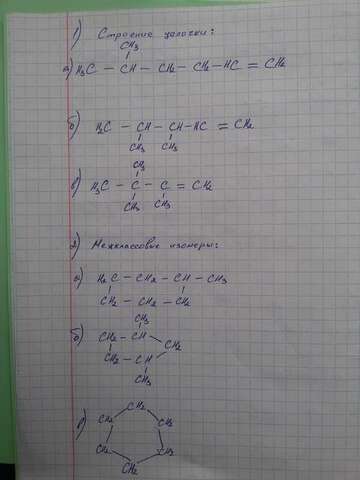 1) Строение цепочки:
CH₃
а) H₃C — CH — CH₂ — CH₂ — HC = CH₂
б) H₃C — CH — CH — HC = CH₂
CH₃ CH₃
CH₃
в) H₃C — C — C = CH₂
CH₃ CH₃
2) Межклассовые изомеры:
а) H₂C — CH₂ — CH — CH₃
CH₂ — CH₂ — CH₂
CH₃
б) CH₂ — CH
CH₂
CH₂ — CH
CH₃
в) CH₂
CH₂ CH₂
CH₂ CH₂
CH₂